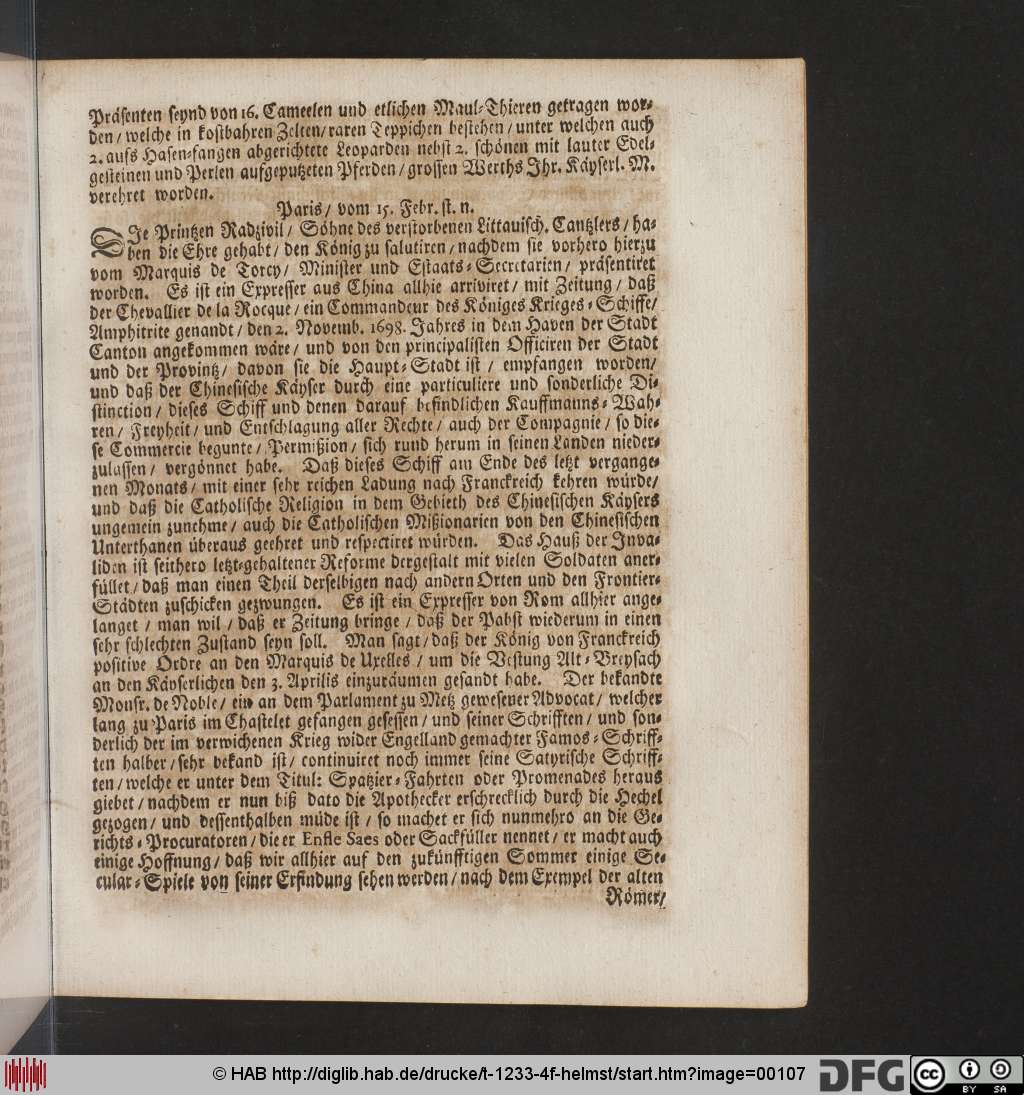 Präsenten seynd von 16. Cameelen und etlichen Maul-Thieren getragen wor-
den/ welche in kostbahren Zelten/ raren Teppichen bestehen/ unter welchen auch
2. aufs Hasen-fangen abgerichtete Leoparden nebst 2. schönen mit lauter Edel-
gesteinen und Perlen aufgeputzeten Pferden/ grossen Werths Ihr. Käyserl. M.
verehret worden.
Paris/ vom 15. Febr. st. n.
DIe Printzen Radzivil/ Söhne des verstorbenen Littauisch. Cantzlers/ ha-
ben die Ehre gehabt/ den König zu salutiren/ nachdem sie vorhero hierzu
vom Marquis de Torcy/ Minister und Estaats-Secretarien/ präsentiret
worden. Es ist ein Expresser aus China allhie arriviret/ mit Zeitung/ daß
der Chevallier de la Rocque/ ein Commandeur des Königes Krieges-Schiffe/
Amphitrite genandt/ den 2. Novemb. 1698. Jahres in dem Haven der Stadt
Canton angekommen wäre/ und von den principalisten Officiren der Stadt
und der Provintz/ davon sie die Haupt-Stadt ist/ empfangen worden/
und daß der Chinesische Käyser durch eine particuliere und sonderliche Di-
stinction/ dieses Schiff und denen darauf befindlichen Kauffmanns-Wah-
ren/ Freyheit/ und Entschlagung aller Rechte/ auch der Compagnie/ so die-
se Commercie begunte/ Permißion/ sich rund herum in seinen Landen nieder-
zulassen/ vergönnet habe. Daß dieses Schiff am Ende des letzt vergange-
nen Monats/ mit einer sehr reichen Ladung nach Franckreich kehren würde/
und daß die Catholische Religion in dem Gebieth des Chinesischen Käysers
ungemein zunehme/ auch die Catholischen Mißionarien von den Chinesischen
Unterthanen überaus geehret und respectiret würden. Das Hauß der Inva-
liden ist seithero letzt-gehaltener Reforme dergestalt mit vielen Soldaten aner-
füllet/ daß man einen Theil derselbigen nach andern Orten und den Frontier-
Städten zuschicken gezwungen. Es ist ein Expresser von Rom allhier ange-
langet/ man wil/ daß er Zeitung bringe/ daß der Pabst wiederum in einen
sehr schlechten Zustand seyn soll. Man sagt/ daß der König von Franckreich
positive Ordre an den Marquis de Uxelles/ um die Vestung Alt-Breysach
an den Käyserlichen den 3. Aprilis einzuräumen gesandt habe. Der bekandte
Monsr. de Noble/ ein an dem Parlament zu Metz gewesener Advocat/ welcher
lang zu Paris im Chastelet gefangen gesessen/ und seiner Schrifften/ und son-
derlich der im verwichenen Krieg wider Engelland gemachter Famos-Schriff-
ten halber/ sehr bekand ist/ continuiret noch immer seine Satyrische Schriff-
ten/ welche er unter dem Titul: Spatzier-Fahrten oder Promenades heraus
giebet/ nachdem er nun biß dato die Apothecker erschrecklich durch die Hechel
gezogen/ und dessenthalben müde ist/ so machet er sich nunmehro an die Ge-
richts-Procuratoren/ die er Enfle Saes oder Sackfüller nennet/ er macht auch
einige Hoffnung/ daß wir allhier auf den zukünfftigen Sommer einige Se-
cular-Spiele von seiner Erfindung sehen werden/ nach dem Exempel der alten
Römer/
© HAB http://diglib.hab.de/drucke/t-1233-4f-helmst/start.htm?image=00107
DFG
cc BY SA